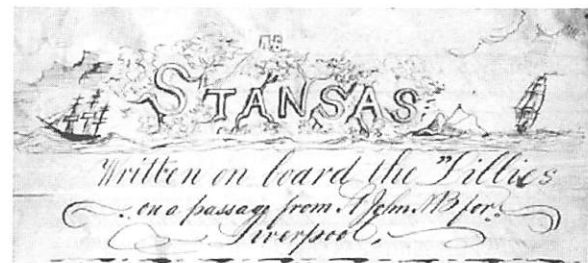 STANSAS
Written on board the "Lillies
on a passage from St John NB for
Liverpool